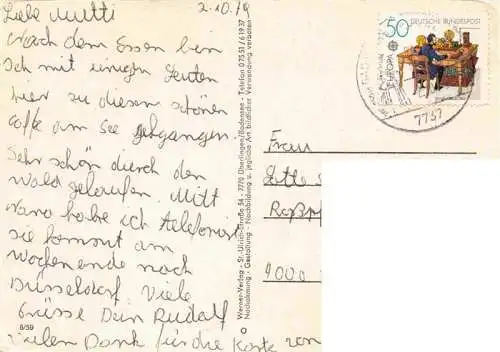 Liebe Mutti 2.10.79
Nach dem Essen bin
ich mit einigen Leuten
hier zu diesem schönen
Caffe am See gegangen.
Sehr schön durch den
Wald gelaufen. Mitt
habe ich telefoniert
sie kommt am
Wochenende nach
Düsseldorf. Viele
Grüsse Dein Rudolf
Vielen Dank für die Karte von
8/59
Werner-Verlag - St.-Ulrich-Straße 54 - 7770 Überlingen/Bodensee - Telefon 07551/61937
Nachahmung - Gestaltung - Nachbildung u. jegliche Art bildlicher Verwendung verboten
50
DEUTSCHE BUNDESPOST
EUROPA
CEPT
7737
Frau